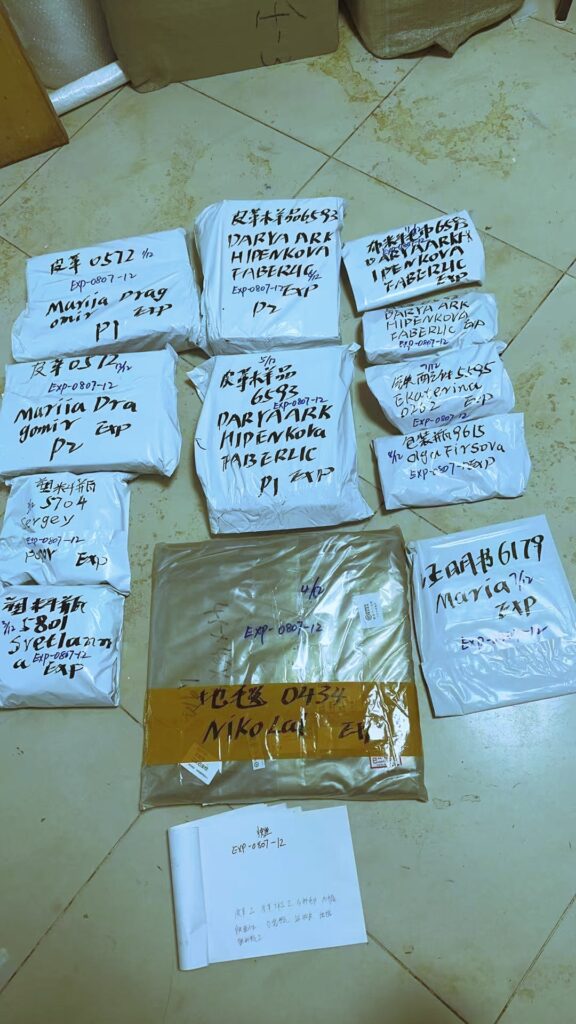 皮革 0572 4/12
EXP-0807-12
Mariia Drag
omir Exp
P1
皮革样品6593
DARYA ARK
HIPENKOVA
FABERLIC 6/12
EXP-0807-12 EXP
P2
6593
DARYA ARKH
IPENKOVA
FABERLIC
Exp
DARYA ARK
HIPENKOVA
FABERLIC EXP
EXP-0807-12
皮革 0572 4/12
EXP-0807-12
Mariia Dra
gomir Exp
P2
5/12
皮革样品
6593
EXP-0807-12
DARYA ARK
HIPENKOVA
FABERLIC
P1 EXP
7/12
5595
Ekaterina
0202 Exp
EXP-0807-12
包装瓶9615
Olga Firsova
EXP-0807-12 Exp
塑料瓶
5704
Sergey
EXP-0807-12
Exp
塑料瓶
5801
Svetlann
a EXP-0807-12
Exp
4/12
EXP-0807-12
地毯 0434
Nikolai Exp
证明书6179
Maria 7/12
EXP
EXP-0807-12
EXP-0807-12